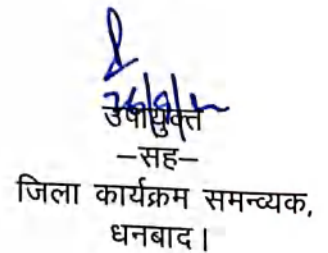 उपायुक्त
–सह–
जिला कार्यक्रम समन्व्यक,
धनबाद।